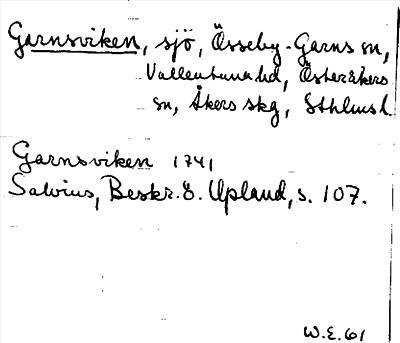 Garnsviken, sjö, Össeby-Garns sn,
Vallentuna hd, Österåkers
sn, Åkers skg, Sthlms l.
Garnsviken 1741
Salvius, Beskr. ö. Upland, s. 107.
W.E. 61